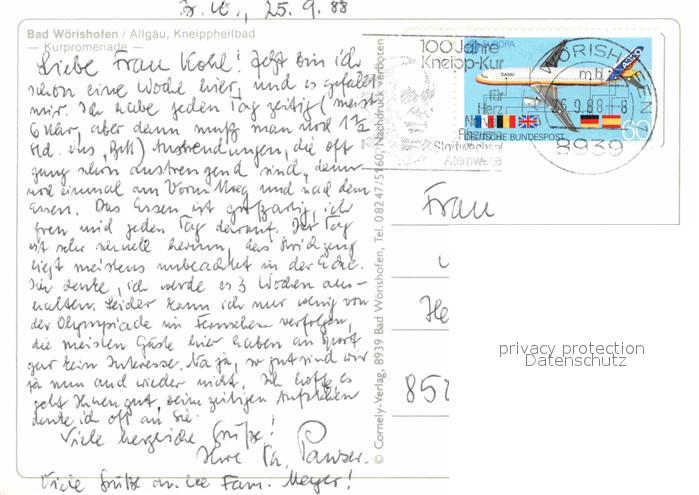 B. W., 25.9.88
Bad Wörishofen / Allgäu, Kneippheilbad
— Kurpromenade —
Liebe Frau Kohl! Jetzt bin ich
schon eine Woche hier, und es gefällt
mir. Ich habe jeden Tag zeitig (meist
6 Uhr, aber dann muß man noch 1½
Std. ins Bett) Anwendungen, die oft
ganz schön anstrengend sind, dann
noch einmal am Vormittag und nach dem
Essen. Das Essen ist großartig, ich
freu mich jeden Tag darauf. Der Tag
ist sehr schnell herum, das Strickzeug
liegt meistens unbeachtet in der Ecke.
Ich denke, ich werde es 3 Wochen aus-
halten. Leider kann ich nur wenig von
der Olympiade im Fernsehen verfolgen,
die meisten Gäste hier haben an Sport
gar kein Interesse. Na ja, so gut sind wir
ja nun auch wieder nicht. Ich hoffe, es
geht Ihnen gut, beim zeitigen Aufstehen
denke ich oft an Sie.
Viele herzliche Grüße!
Ihre Ch. Panzer.
Viele Grüße an die Fam. Meyer!
© Cornely-Verlag, 8939 Bad Wörishofen, Tel. 08247/5160, Nachdruck verboten
100 Jahre
Kneipp-Kur
für
Herz
Stoffwechsel
Atemwege
EUROPA
A320
DEUTSCHE BUNDESPOST
60
WÖRISHOFEN
mb
26.9.88-8
8939
Frau
He
852
privacy protection
Datenschutz